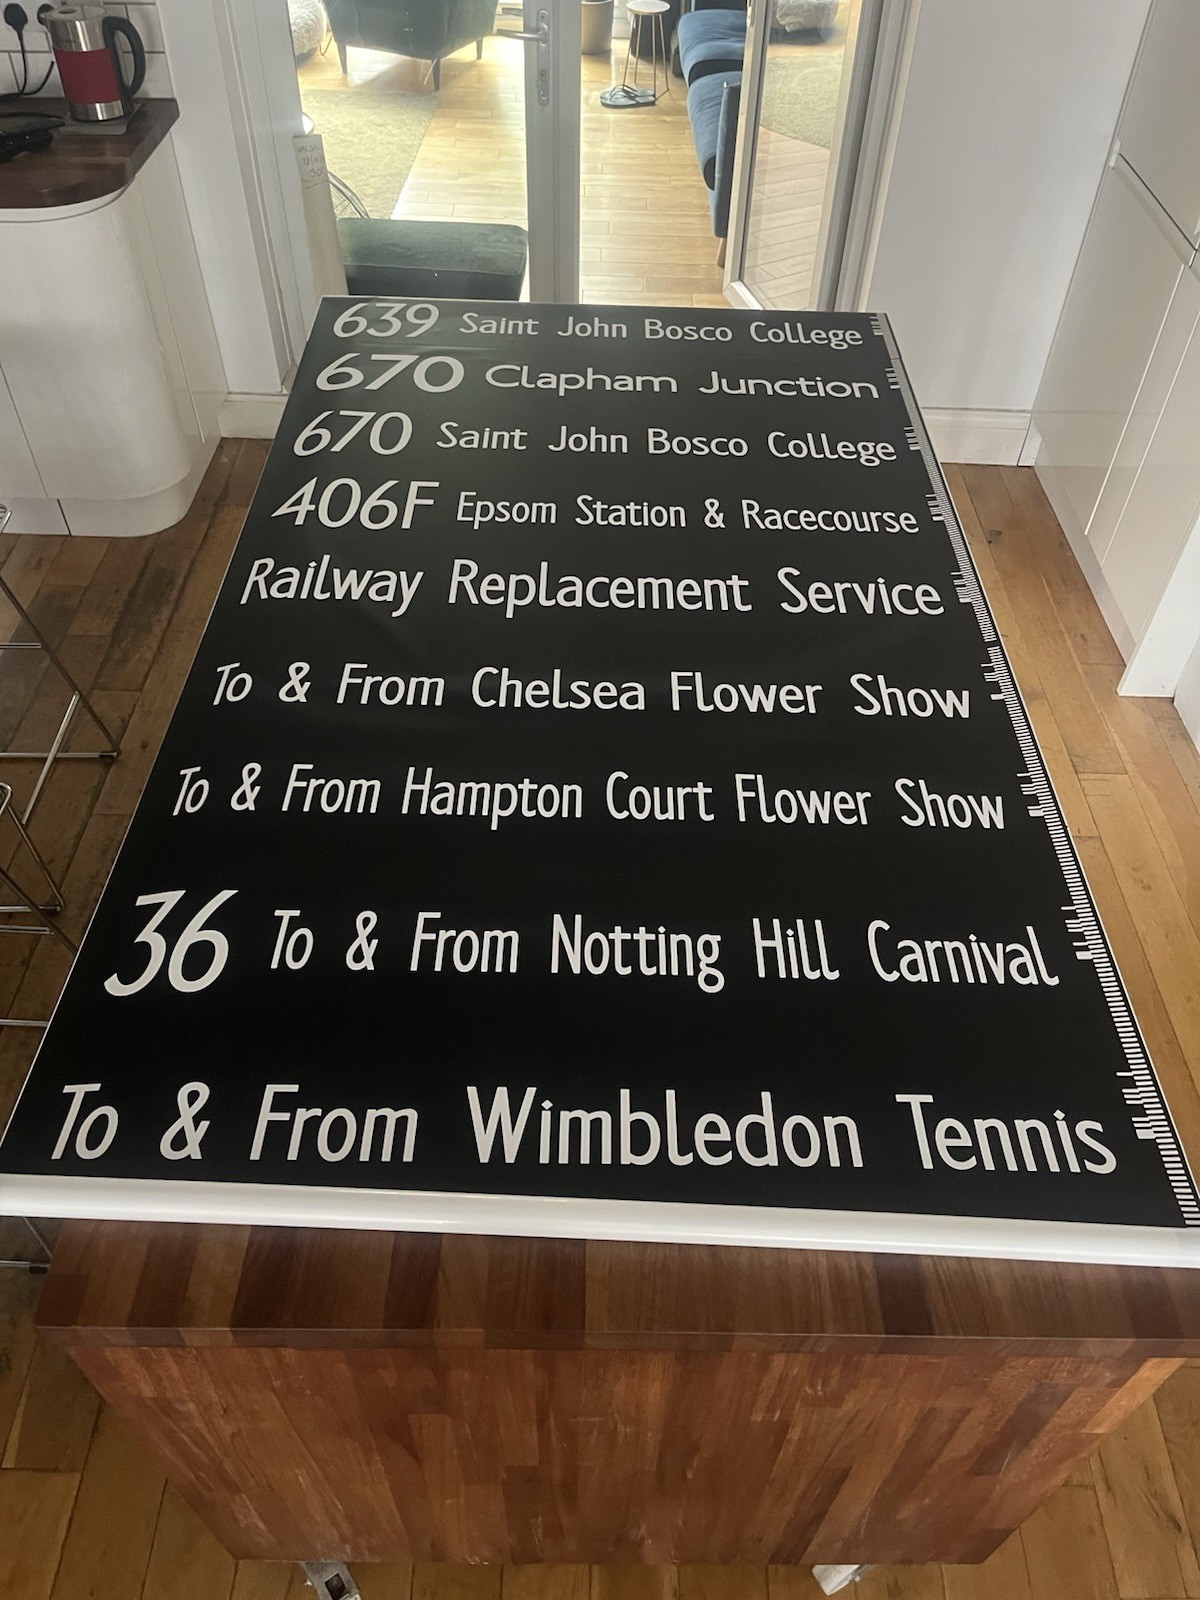 639 Saint John Bosco College
670 Clapham Junction
670 Saint John Bosco College
406F Epsom Station & Racecourse
Railway Replacement Service
To & From Chelsea Flower Show
To & From Hampton Court Flower Show
36 To & From Notting Hill Carnival
To & From Wimbledon Tennis